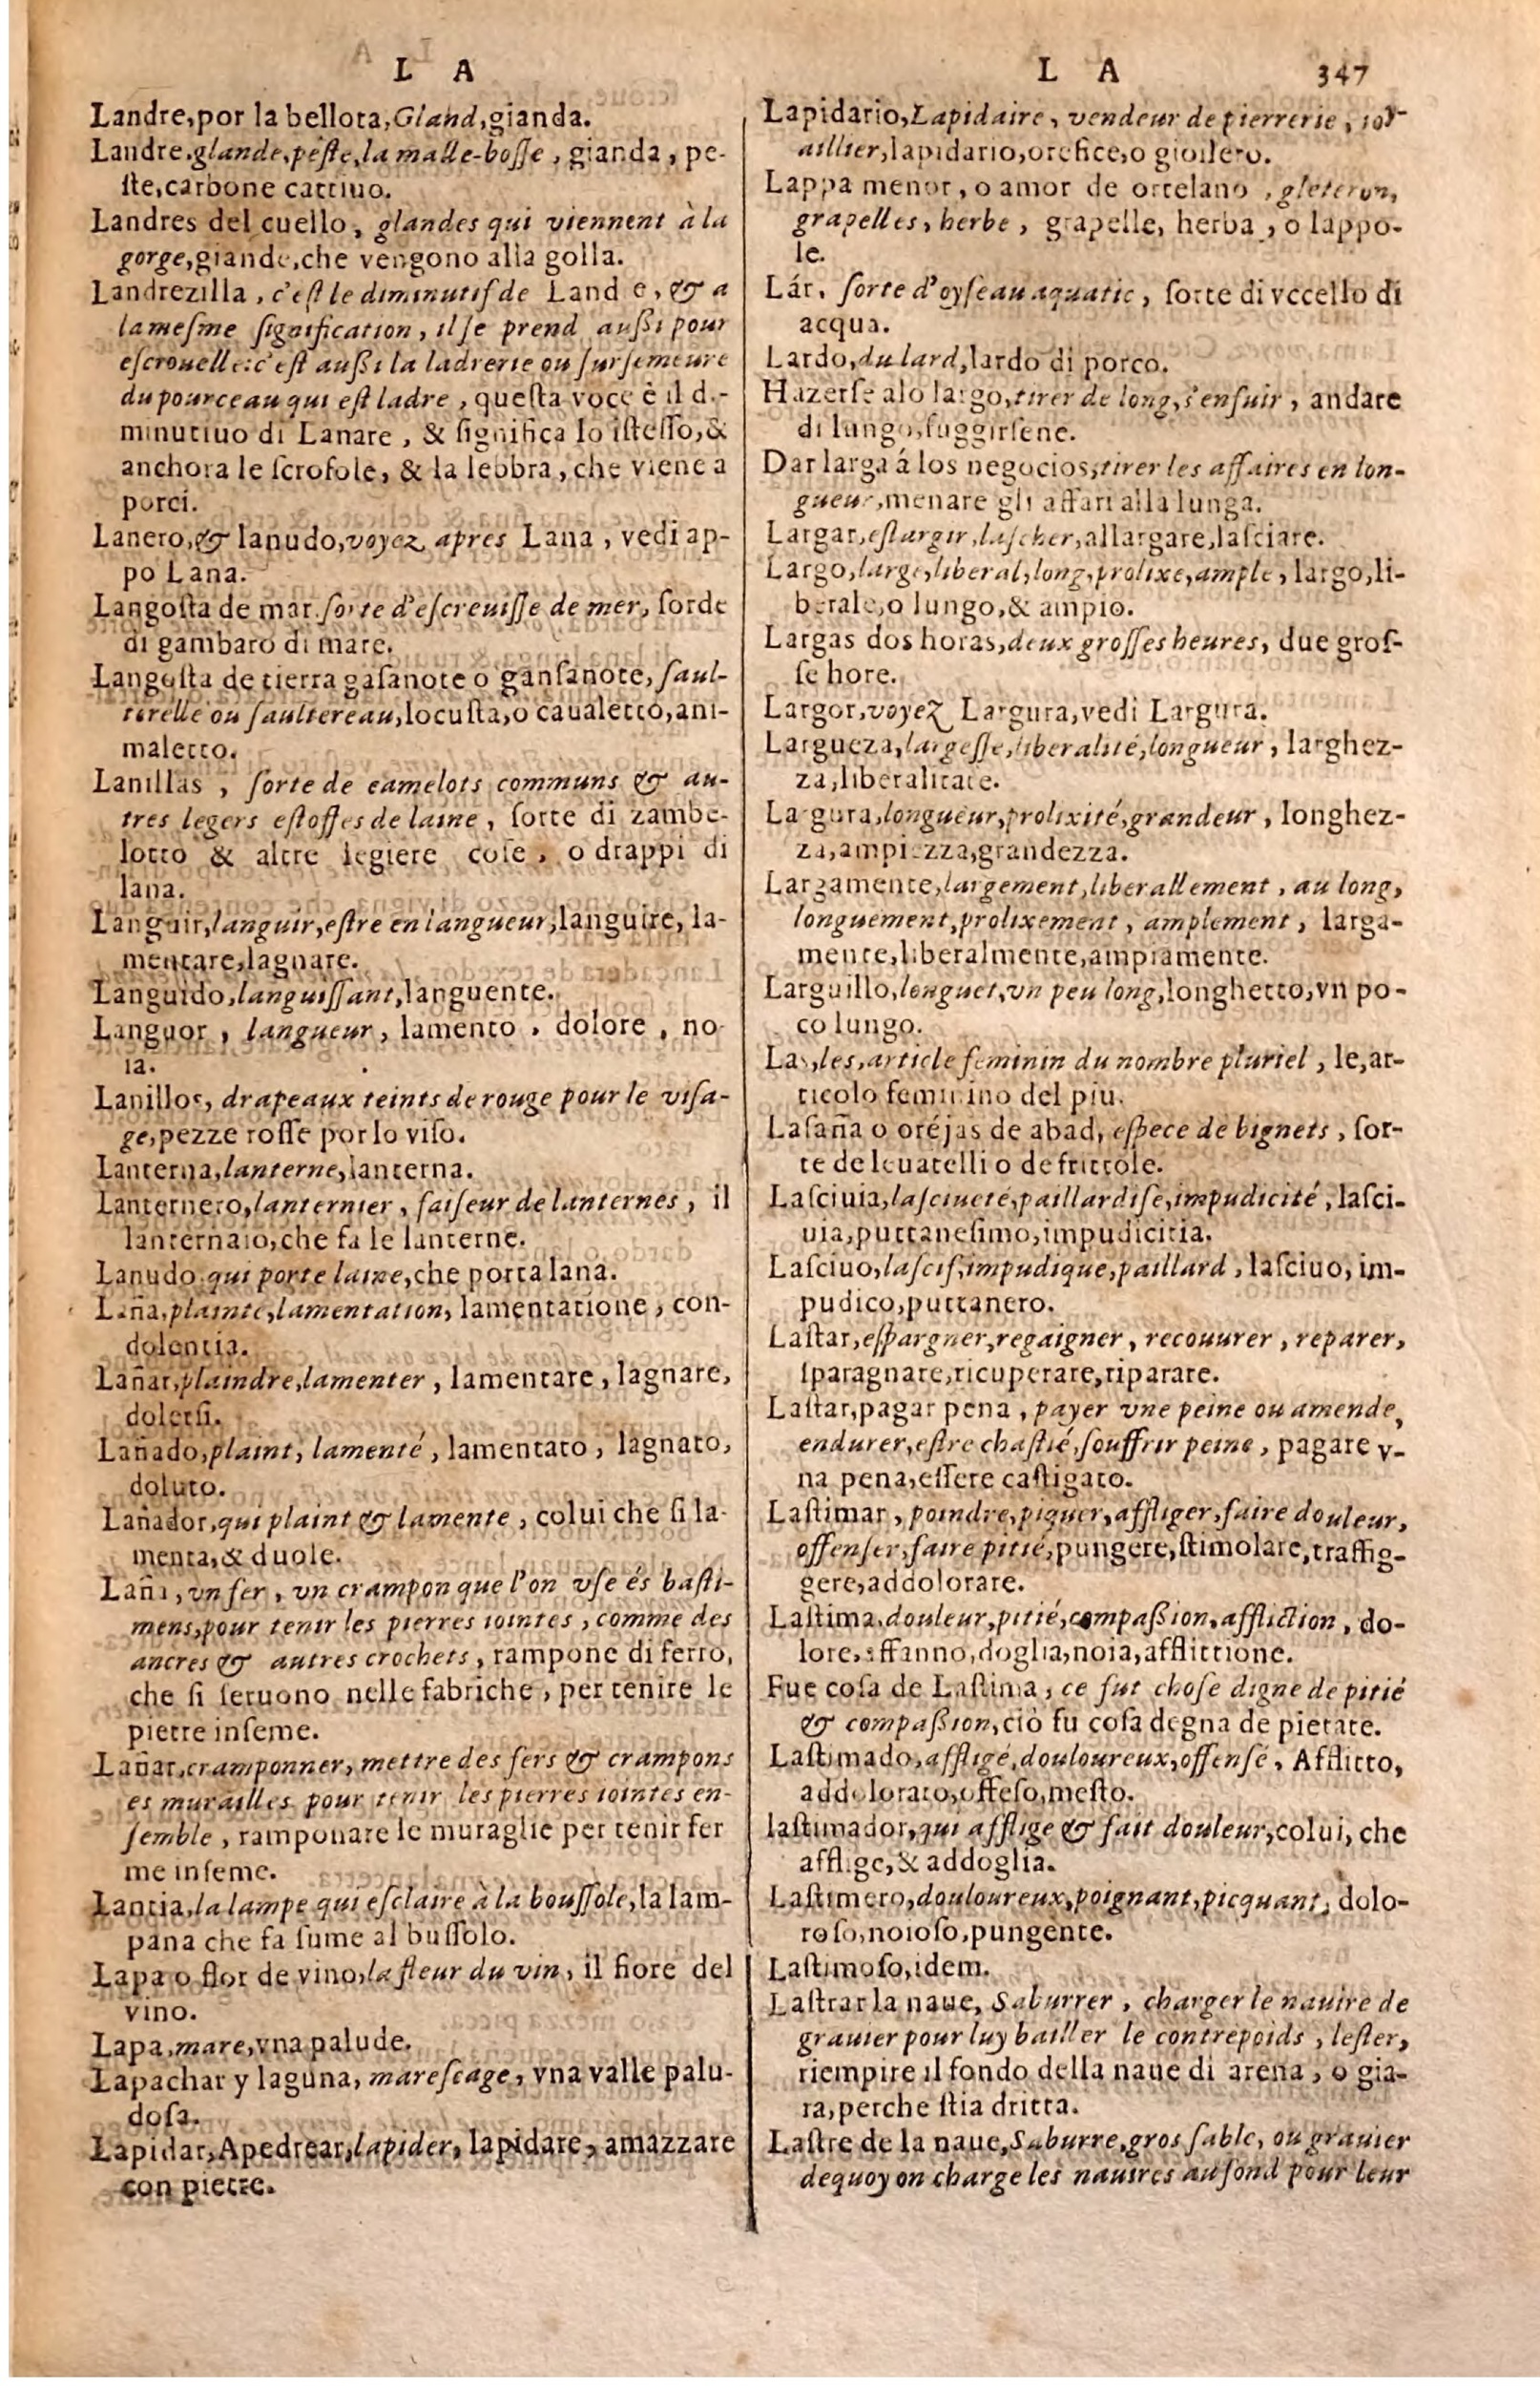 L A
Landre,por la bellota,Gland,gianda.
Landre.glande,peſte,la malle-boſſe, gianda, pe-
ſte,carbone cattiuo.
Landres del cuello, glandes qui viennent à la
gorge,giande,che vengono alla golla.
Landrezilla, c'eſt le diminutif de Land e, & a
la meſme ſignification, il ſe prend auſſi pour
eſcrouelle:c'eſt auſſi la ladrerie ou ſurſemeure
du pourceau qui eſt ladre, queſta voce è il di-
minutiuo di Lanare, & ſignifica lo iſteſſo,&
anchora le ſcrofole, & la lebbra, che viene a
porci.
Lanero,& lanudo,voyez apres Lana, vedi ap-
po Lana.
Langoſta de mar.ſorte d'eſcreuiſſe de mer, ſorde
di gambaro di mare.
Langoſta de tierra gaſanote o ganſanote, ſaul-
terelle ou ſaultereau,locuſta,o caualetto,ani-
maletto.
Lanillas, ſorte de camelots communs & au-
tres legers eſtoffes de laine, ſorte di zambe-
lotto & altre legiere coſe, o drappi di
lana.
Languir,languir,eſtre en langueur,languire, la-
mentare,lagnare.
Languido,languiſſant,languente.
Languor, langueur, lamento, dolore, no
ia.
Lanillos, drapeaux teints de rouge pour le viſa-
ge,pezze roſſe por lo viſo.
Lanterna,lanterne,lanterna.
Lanternero,lanternier, faiſeur de lanternes, il
lanternaio,che fa le lanterne.
Lanudo.qui porte laine,che porta lana.
Laña,plainte,lamentation, lamentatione, con-
dolentia.
Lañar,plaindre,lamenter, lamentare, lagnare,
dolerſi.
Lañado,plaint, lamenté, lamentato, lagnato,
doluto.
Lañador,qui plaint & lamente, colui che ſi la-
menta,& duole.
Laña, vn fer, vn crampon que l'on vſe és baſti-
mens,pour tenir les pierres iointes, comme des
ancres & autres crochets, rampone di ferro,
che ſi ſeruono nelle fabriche, per tenire le
pietre inſeme.
Lañar,cramponner, mettre des fers & crampons
es murailles pour tenir les pierres iointes en-
ſemble, ramponare le muraglie per tenir fer
me inſeme.
Lantia,la lampe qui eſclaire à la bouſſole,la lam-
pana che fa fume al buſſolo.
Lapa o flor de vino,la fleur du vin, il fiore del
vino.
Lapa,mare,vna palude.
Lapachar y laguna, mareſcage, vna valle palu-
doſa.
Lapidar,Apedrear,lapider, lapidare, amazzare
con pietre.
L A 347
Lapidario,Lapidaire, vendeur de pierrerie, ioy-
aillier,lapidario,orefice,o gioilero.
Lappa menor, o amor de ortelano, gleteron,
grapelles, herbe, grapelle, herba, o lappo-
le.
Lár, ſorte d'oyſeau aquatic, ſorte di vccello di
acqua.
Lardo,du lard,lardo di porco.
Hazerſe alo largo,tirer de long,s'enfuir, andare
di lungo,fuggirſene.
Dar larga á los negocios,tirer les affaires en lon-
gueur,menare gli affari alla lunga.
Largar,eſlargir,laſcher,allargare,laſciare.
Largo,large,liberal,long,prolixe,ample, largo,li-
berale,o lungo,& ampio.
Largas dos horas,deux groſſes heures, due groſ-
ſe hore.
Largor,voyez Largura,vedi Largura.
Largueza,largeſſe,liberalité,longueur, larghez-
za,liberalitate.
Largura,longueur,prolixité,grandeur, longhez-
za,ampiezza,grandezza.
Largamente,largement,liberallement, au long,
longuement,prolixement, amplement, larga-
mente,liberalmente,ampiamente.
Larguillo,longuet,vn peu long,longhetto,vn po-
co lungo.
Las,les,article feminin du nombre pluriel, le,ar-
ticolo feminino del piu.
Laſaña o oréjas de abad, eſpece de bignets, ſor-
te de leuatelli o de frittole.
Laſciuia,laſciueté,paillardiſe,impudicité, laſci-
uia,puttaneſimo,impudicitia.
Laſciuo,laſcif,impudique,paillard, laſciuo, im-
pudico,puttanero.
Laſtar,eſpargner,regaigner, recouurer, reparer,
ſparagnare,ricuperare,riparare.
Laſtar,pagar pena, payer vne peine ou amende,
endurer,eſtre chaſtié,ſouffrir peine, pagare v-
na pena,eſſere caſtigato.
Laſtimar, poindre,piquer,affliger,faire douleur,
offenſer,faire pitié,pungere,ſtimolare,traffig-
gere,addolorare.
Laſtima,douleur,pitié,compaſſion,affliction, do-
lore,affanno,doglia,noia,afflittione.
Fue coſa de Laſtima, ce fut choſe digne de pitié
& compaſſion,ciò fu coſa degna de pietate.
Laſtimado,affligé,douloureux,offenſé, Afflitto,
addolorato,offeſo,meſto.
laſtimador,qui afflige & fait douleur,colui, che
afflige,& addoglia.
Laſtimero,douloureux,poignant,picquant, dolo-
roſo,noioſo,pungente.
Laſtimoſo,idem.
Laſtrar la naue, Saburrer, charger le nauire de
grauier pour luy bailler le contrepoids, leſter,
riempire il fondo della naue di arena, o gia-
ra,perche ſtia dritta.
Laſtre de la naue,Saburre,gros ſable, ou grauier
dequoy on charge les nauires au fond pour leur